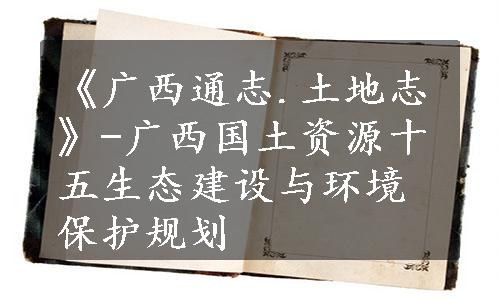 《广西通志.土地志
》-广西国土资源十
五生态建设与环境
保护规划